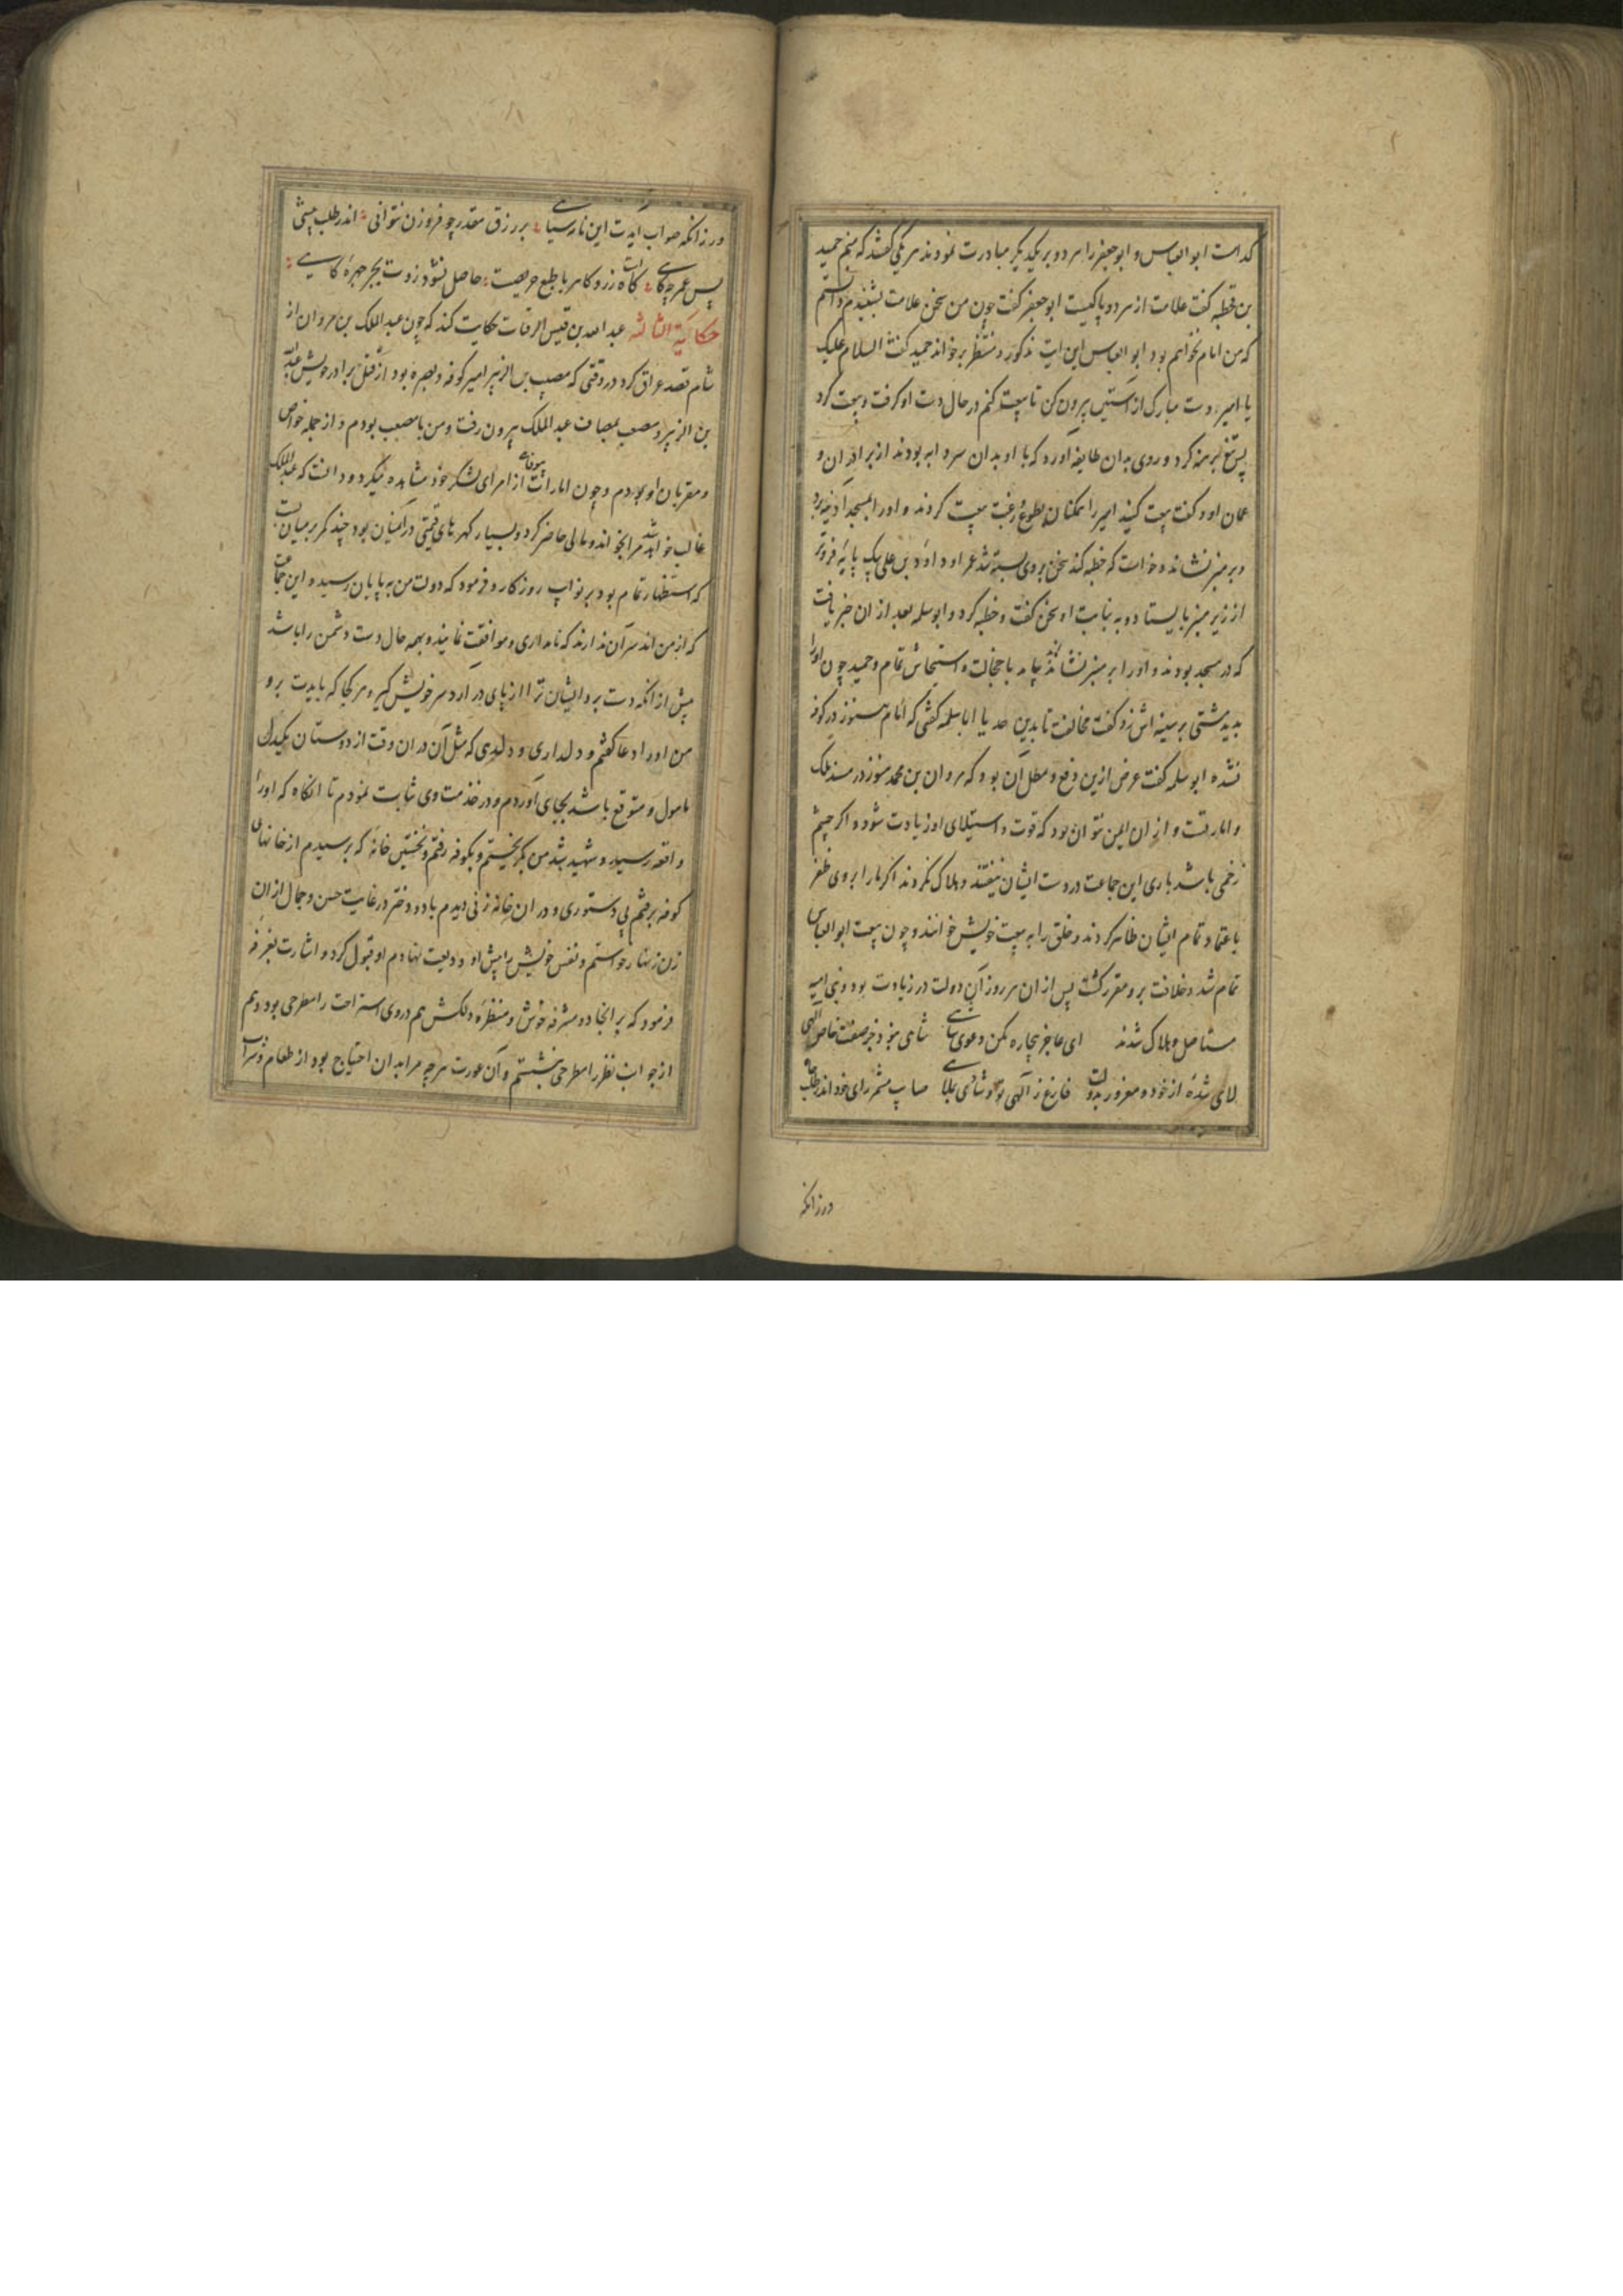 کدامست ابو العباس و ابو جعفر را هر دو بر یکدیگر مبادرت نمودند هر یکی گفتند که منم حمید
بن قحطبه گفت علامت از هر دو با کیست ابو جعفر گفت چون من سخن علامت بشنیدم دانستم
که من امام نخواهم بود ابو العباس این آیت مذکور و منتظر برخواند حمید گفت السلام علیک
یا امیر دست مبارک از آستین بیرون کن تا بیعت کنم در حال دست او گرفت و بیعت کرد
پس تیغ برهنه کرد و روی بدان طایفه آورد که با او بدان سردابه بودند از برادران و
عمان او و گفت بیعت کنید امیر را همگنان بطوع و رغبت بیعت کردند و او را بمسجد آدینه برد
و بر منبر نشاند و خواست که خطبه کند سخن بروی بسته شد عم او داود بن علی یک پایه فروتر
از زیر منبر بایستاد و به نیابت او سخن گفت و خطبه کرد و ابو سلمه بعد از ان خبر یافت
که در مسجد بودند و او را بر منبر نشانده بیامد با خجالت و استیحاش تمام و حمید چون او را
بدید مشتی بر سینه اش زد و گفت مخالفت تا بدین حد یا ابا سلمه گفتی که امام هنوز در کوفه
نشده ابو سلمه گفت غرض ازین دفع و مطل آن بود که مروان بن محمد هنوز در مسند ملک
و امارتست و از ان ایمن نتوان بود که قوت و استیلای او زیادت شود و اگر چشم
زخمی باشد باری این جماعت در دست ایشان نیفتند و هلاک نگردند اگر ما را بروی ظفر
باعتماد تمام ایشان ظاهر گردند و خلق را به بیعت خویش خوانند و چون بیعت ابو العباس
تمام شد و خلافت برو مقرر گشت پس از ان هر روز آن دولت در زیادت بود و بنی امیه
مستاصل و هلاک شدند ای عاجز بیچاره مکن دعوی شاهی شاهی نبود جز صفت خاص الهی
لای شده از خود و مغرور بدولت فارغ ز الهی تو و شادی بملاهی صایب مشمر رای خود اندر طلب جاه
ورزانکه
ورزانکه صواب آیدت این نارسیاهی بر رزق مقدر چو فزودن نتوانی اندر طلب بیشی
پس عمر چه کاهی کاهست زر و کاهربا طبع حریصت حاصل نشود زوت بجز چهره کاهی
حکایة الثالثه عبد الله بن قیس الرقیات حکایت کند که چون عبد الملک بن مروان از
شام قصد عراق کرد در وقتی که مصعب بن الزبیر امیر کوفه و بصره بود از قبل برادر خویش عبدالله
بن الزبیر و مصعب بمصاف عبد الملک بیرون رفت و من با مصعب بودم و از جمله خواص
و مقربان او بودم و چون امارات بیوفایی از امرای لشکر خود مشاهده میکرد و دانست که عبد الملک
غالب خواهد شد مرا بخواند و مالی حاضر کرد و بسیار گهرهای قیمتی در آن میان بود چند کمر بر میان بست
که استظهار تمام بود بر نوایب روزگار و فرمود که دولت من به پایان رسید و این جماعت
که از من اند سر آن ندارند که نامداری و موافقت نمایند و بهمه حال دست دشمن را باشد
پیش از انکه دست برد ایشان ترا از پای در آرد سر خویش گیر و هر کجا که بایدت برو
من او را دعا گفتم و دلداری و دلدهی که مثل آن در ان وقت از دوستان یکدل
مامول و متوقع باشد بجای آوردم و در خدمت وی ثابت نمودم تا انگاه که او را
واقعه رسید و شهید شد من بگریختم و بکوفه رفتم و نخستین خانه که برسیدم از خانهای
کوفه برفتم بی دستوری و در ان خانه زنی دیدم با دو دختر در غایت حسن و جمال از ان
زن زنهار خواستم و نفس خویش را پیش او ودیعت نهادم او قبول کرد و اشارت بغرفه
فرمود که بر انجا رو مشرفه خوش و منظره دلکش هم در وی استراحت را مطرحی بود و هم
از جوانب نظر را مطرحی بنشستم و آن عورت هرچه مرا بدان احتیاج بود از طعام و شراب